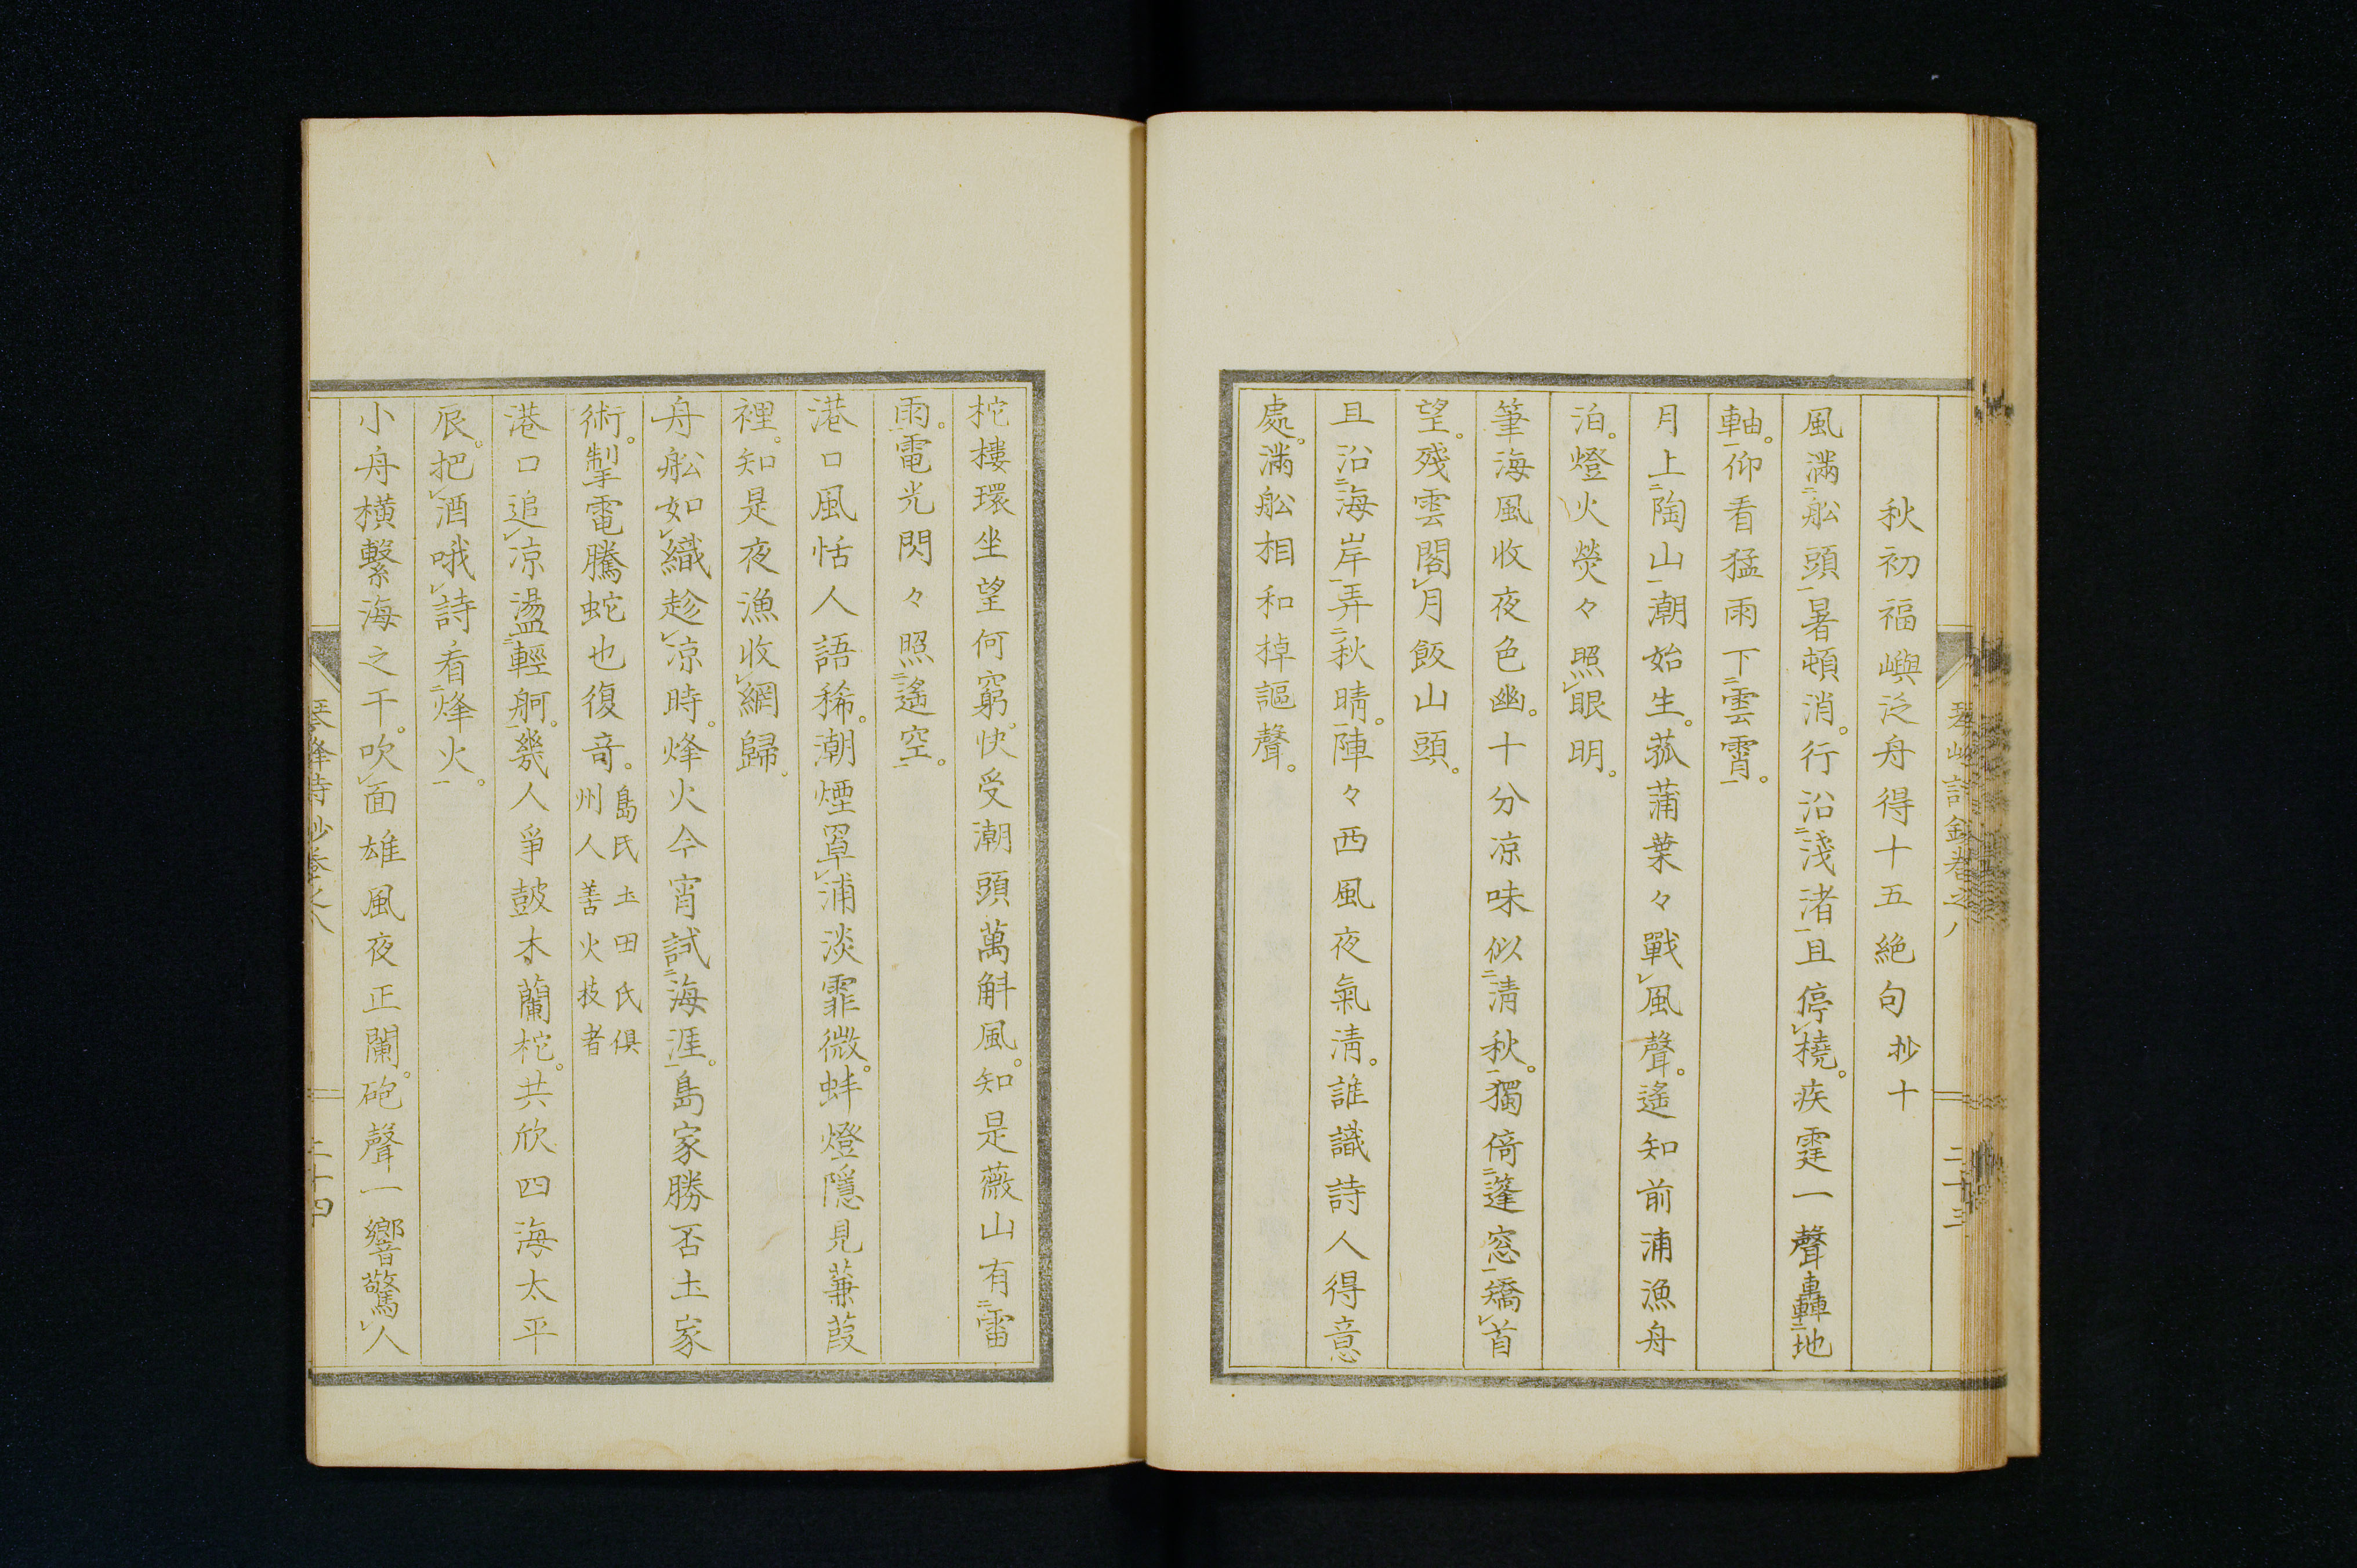 秋初福嶼泛舟得十五絶句抄十
風滿舩頭暑頓消。行沿淺渚且停橈。疾霆一聲轟地
軸。仰看猛雨下雲霄。
月上陶山潮始生。菰蒲葉々戰風聲。遙知前浦漁舟
泊。燈火熒々照眼明。
篷海風收夜色幽。十分凉味似清秋。獨倚篷窓矯首
望。殘雲閣月飯山頭。
且沿海岸弄秋晴。陣々西風夜氣清。誰識詩人得意
處。滿舩相和棹謳聲。
二十三
柁樓環坐望何窮。快受潮頭萬斛風。知是薇山有雷
雨。電光閃々照遙空。
港口風恬人語稀。潮煙罩浦淡霏微。蚌燈隱見蒹葭
裡。知是夜漁收網歸。
舟舩如織趁凉時。烽火今宵試海涯。島家勝否土家
術。掣電騰蛇也復奇。島氏土田氏俱
州人善火技者
港口追凉盪輕舸。幾人爭鼓木蘭柁。共欣四海太平
辰。把酒哦詩看烽火。
小舟橫繫海之干。吹面雄風夜正闌。砲聲一響驚人
琴峰詩抄卷之八
二十四